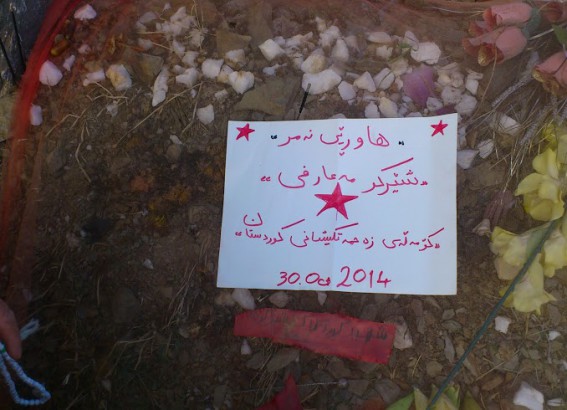 "هاوڕێی نەمر"
"شێرکۆ مەعارفی"
"کۆمەڵەی زەحمەتکێشانی کوردستان"
30.05 2014
شهید